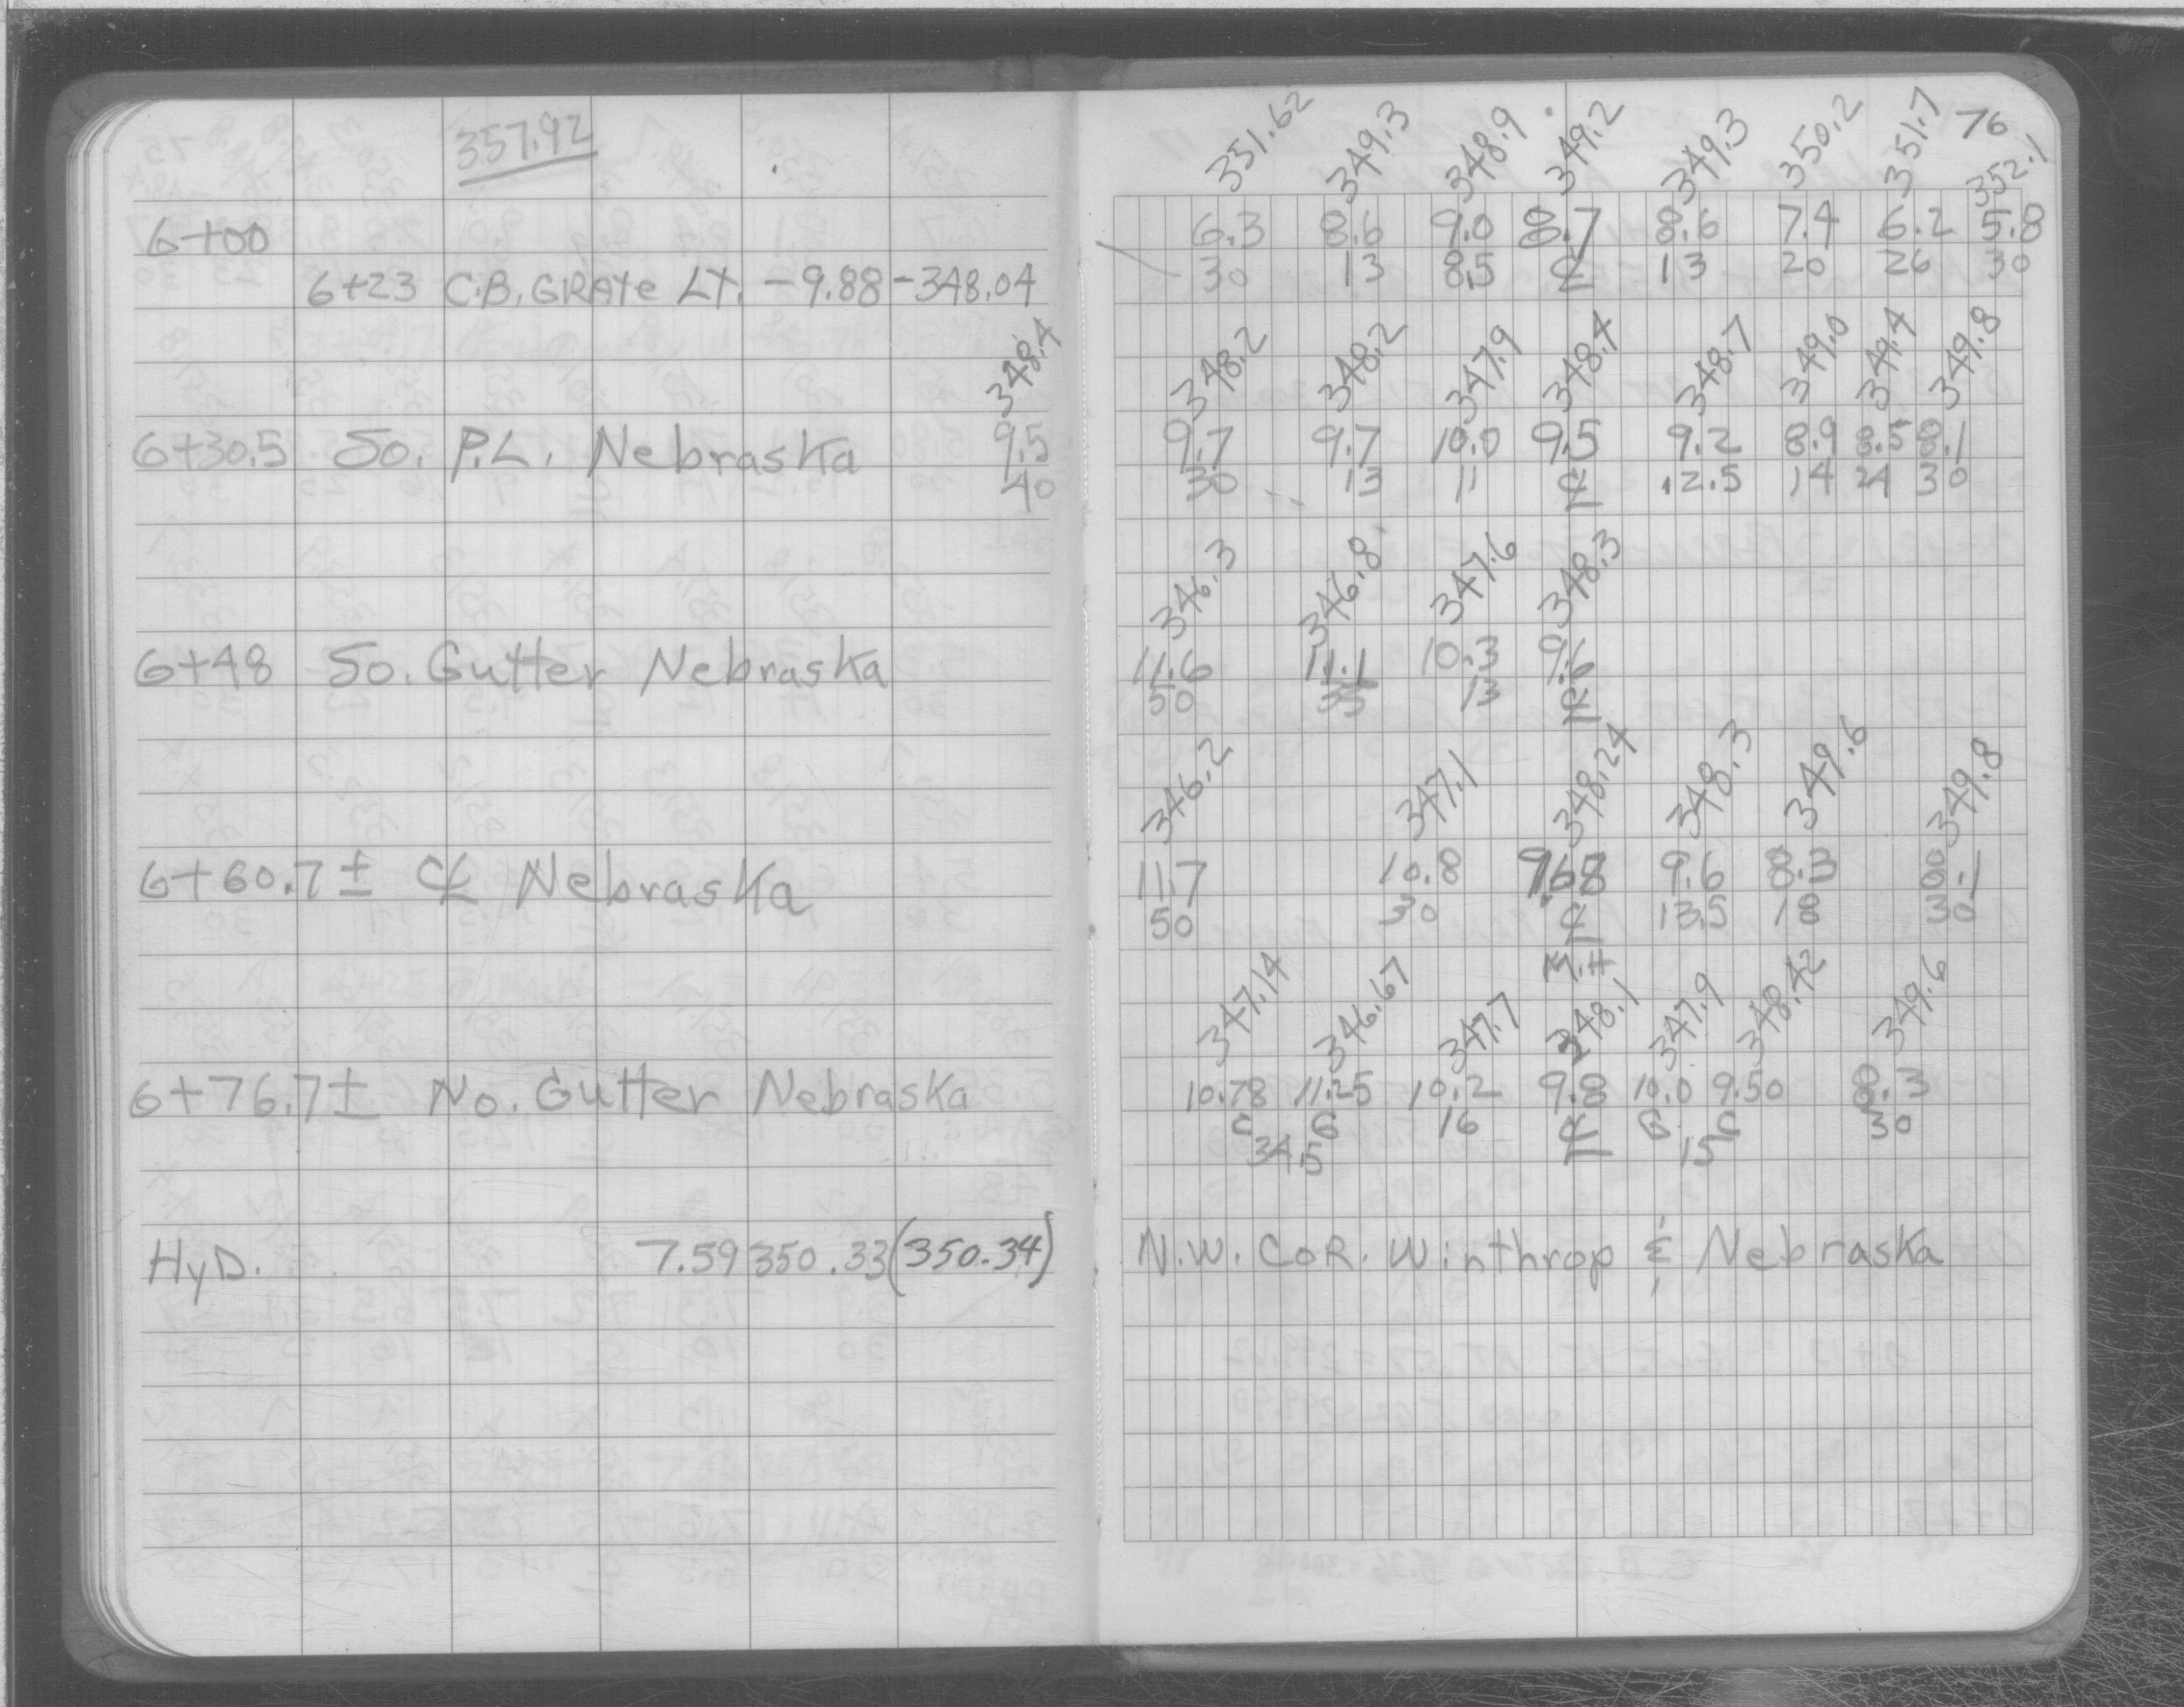 357.92
76
351.62 349.3 348.9 349.2 349.3 350.2 351.7 352.1
6+00 6.3 8.6 9.0 8.7 8.6 7.4 6.2 5.8
30 13 8.5 ℄ 13 20 26 30
6+23 C.B. GRAte Lt. -9.88 -348.04
348.4 348.2 348.2 347.9 348.4 348.7 349.0 349.4 349.8
6+30.5 So. P.L. Nebraska 9.5 9.7 9.7 10.0 9.5 9.2 8.9 8.5 8.1
40 30 13 11 ℄ 12.5 14 24 30
346.3 346.8 347.6 348.3
6+48 So. Gutter Nebraska 11.6 11.1 10.3 9.6
50 35 13 ℄
346.2 347.1 348.24 348.3 349.6 349.8
6+60.7± ℄ Nebraska 11.7 10.8 9.68 9.6 8.3 8.1
50 30 ℄ 13.5 18 30
M.H
347.14 346.67 347.7 348.1 347.9 348.42 349.6
6+76.7± No. Gutter Nebraska 10.78 11.25 10.2 9.8 10.0 9.50 8.3
C G 16 ℄ G C 30
34.5 15
HyD. 7.59 350.33 (350.34) N.W. CoR. Winthrop & Nebraska